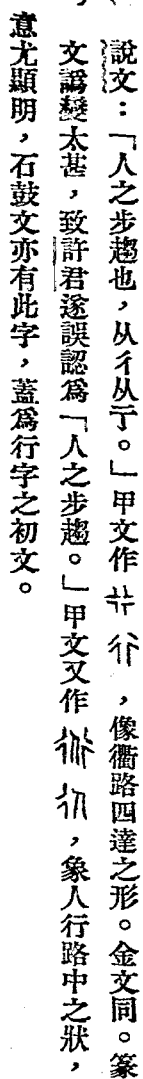 說文：「人之步趨也，从彳从亍。」甲文作，像衢路四達之形。金文同。篆
文譌變太甚，致許君遂誤認爲「人之步趨。」甲文又作，象人行路中之狀，
意尤顯明，石鼓文亦有此字，蓋爲行字之初文。